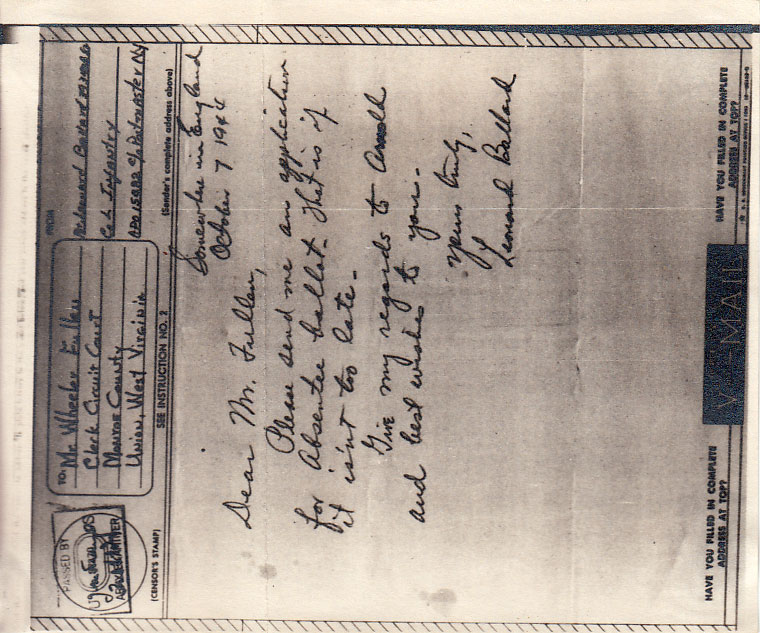 PASSED BY
ARMY EXAMINER
(CENSOR'S STAMP)
TO: Mr. Wheeler Fuller
Clerk Circuit Court
Monroe County
Union, West Virginia
SEE INSTRUCTION NO. 2
FROM
Leonard Ballard
Co L Infantry
APO 15882 c/o Postmaster NY
(Sender's complete address above)
Somewhere in England
October 7 1944
Dear Mr. Fuller,
Please send me an application
for Absentee ballot. That is if
it isn't too late.
Give my regards to Arnold
and best wishes to you.
Yours truly,
Leonard Ballard
HAVE YOU FILLED IN COMPLETE
ADDRESS AT TOP?
V-MAIL
HAVE YOU FILLED IN COMPLETE
ADDRESS AT TOP?